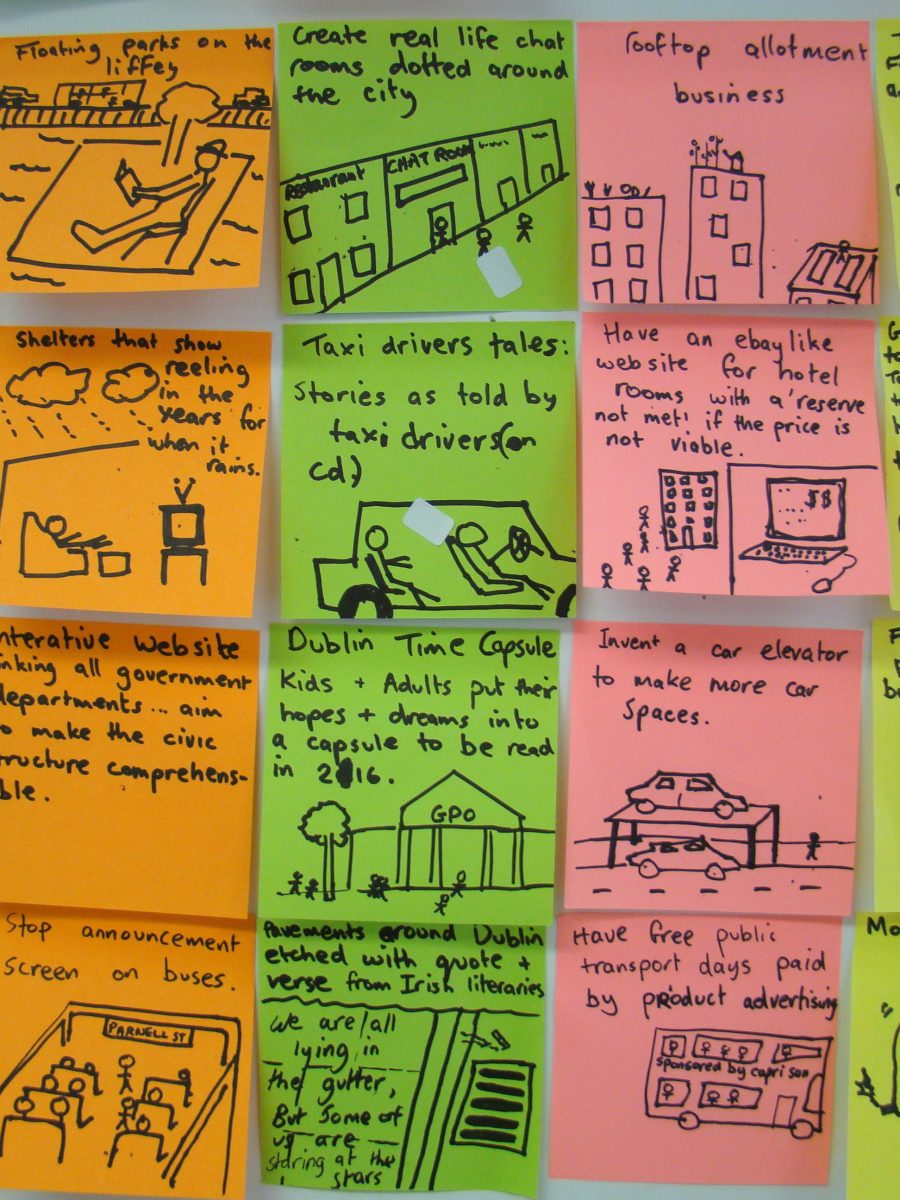 Floating parks on the
liffey
Create real life chat
rooms dotted around
the city
Restaurant
CHAT ROOM
rooftop allotment
business
Shelters that show
reeling
in the
years for
when it
rains.
Taxi drivers tales:
Stories as told by
taxi drivers(on
cd)
Have an ebay like
website for hotel
rooms with a 'reserve
not met! if the price is
not viable.
$$
nterative website
inking all government
departments... aim
o make the civic
tructure comprehens-
ble.
Dublin Time Capsule
Kids + Adults put their
hopes + dreams into
a capsule to be read
in 2016.
GPO
Invent a car elevator
to make more car
spaces.
Stop announcement
screen on buses.
PARNELL ST
Pavements around Dublin
etched with quote +
verse from Irish literaries
We are all
lying in
the gutter,
But some of
us are
staring at the
stars
Have free public
transport days paid
by product advertising
sponsored by capri sun
Mo